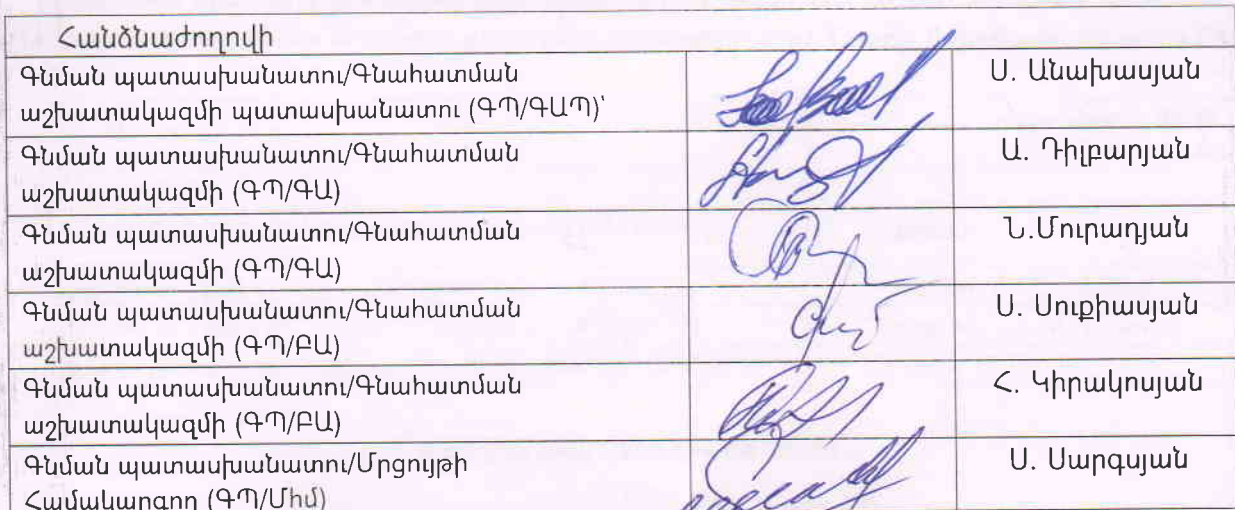 Հանձնաժողովի
Գնման պատասխանատու/Գնահատման
աշխատակազմի պատասխանատու (ԳՊ/ԳԱՊ)՝
Ս. Անախասյան
Գնման պատասխանատու/Գնահատման
աշխատակազմի (ԳՊ/ԳԱ)
Ա. Դիլբարյան
Գնման պատասխանատու/Գնահատման
աշխատակազմի (ԳՊ/ԳԱ)
Ն.Մուրադյան
Գնման պատասխանատու/Գնահատման
աշխատակազմի (ԳՊ/ԲԱ)
Ս. Սուքիասյան
Գնման պատասխանատու/Գնահատման
աշխատակազմի (ԳՊ/ԲԱ)
Հ. Կիրակոսյան
Գնման պատասխանատու/Մրցույթի
Համակարգող (ԳՊ/Մհմ)
Ս. Սարգսյան